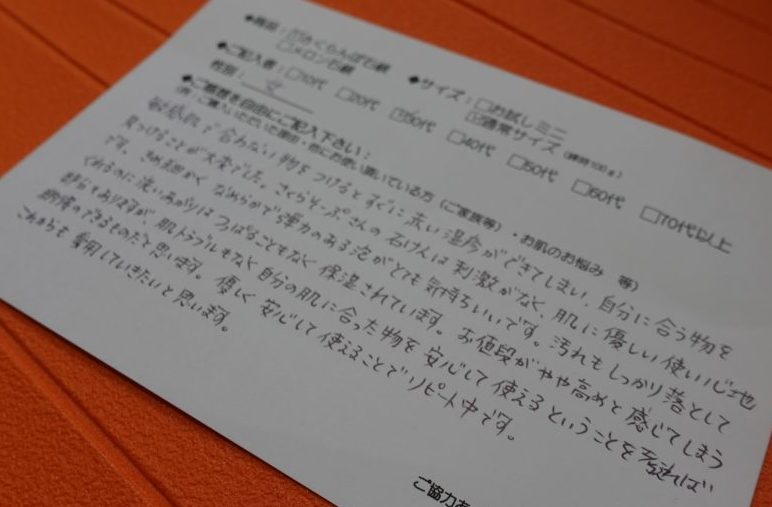 ◆商品：☑さくらんぼ石鹸　◆サイズ：□お試しミニ
□メロン石鹸　☑通常サイズ（標準100g）
◆ご記入者：□10代　□20代　☑30代　□40代　□50代　□60代　□70代以上
性別：女
◆ご感想を自由にご記入下さい：
（例：ご購入いただいた理由・他にお使い頂いている方（ご家族等）・お肌のお悩み　等）
敏感肌で合わない物をつけるとすぐに赤い湿疹ができてしまい、自分に合う物を
見つけることが大変でした。さくらそーぷさんの石けんは刺激がなく、肌に優しい使い心地
です。きめ細かく なめらかで弾力のある泡がとても気持ちいいです。汚れもしっかり落として
くれるのに洗いあがりはつっぱることもなく保湿されています。お値段がやや高めと感じてしまう
部分もありますが、肌トラブルもなく自分の肌に合った物を安心して使えるということを考えれば
納得のできるものだと思います。優しく安心して使えることでリピート中です。
これからも愛用していきたいと思います。
ご協力あ